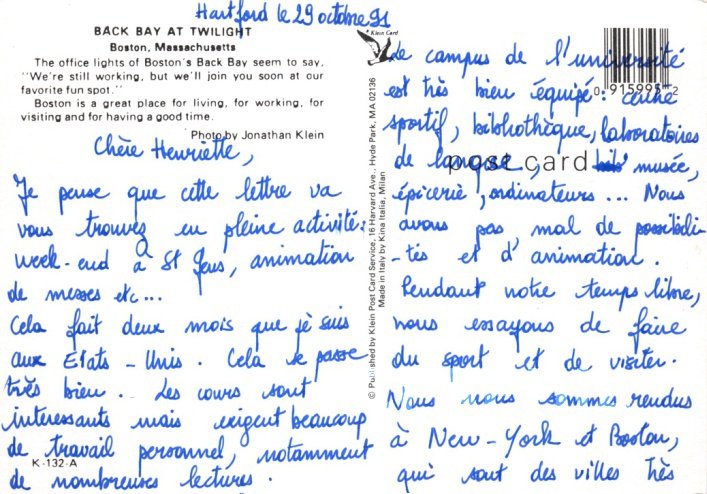 Hartford le 29 octobre 91
BACK BAY AT TWILIGHT
Boston, Massachusetts
The office lights of Boston's Back Bay seem to say,
"We're still working, but we'll join you soon at our
favorite fun spot."
Boston is a great place for living, for working, for
visiting and for having a good time.
Photo by Jonathan Klein
Chère Henriette,
Je pense que cette lettre va
vous trouver en pleine activité:
week-end à St Jeus, animation
de messes etc...
Cela fait deux mois que je suis
aux Etats-Unis. Cela se passe
très bien. Les cours sont
interessants mais exigent beaucoup
de travail personnel, notamment
de nombreuses lectures.
K-132-A
Klein Card
© Published by Klein Post Card Service, 16 Harvard Ave., Hyde Park, MA 02136
Made in Italy by Kina Italia, Milan
0 915995 2
post card
Le campus de l'université
est très bien équipé: centre
sportif, bibliothèque, laboratoires
de langue, musée,
épicerie, ordinateurs... Nous
avons pas mal de possibili-
-tés et d'animation.
Pendant notre temps libre,
nous essayons de faire
du sport et de visiter.
Nous nous sommes rendus
à New-York et Boston,
qui sont des villes très